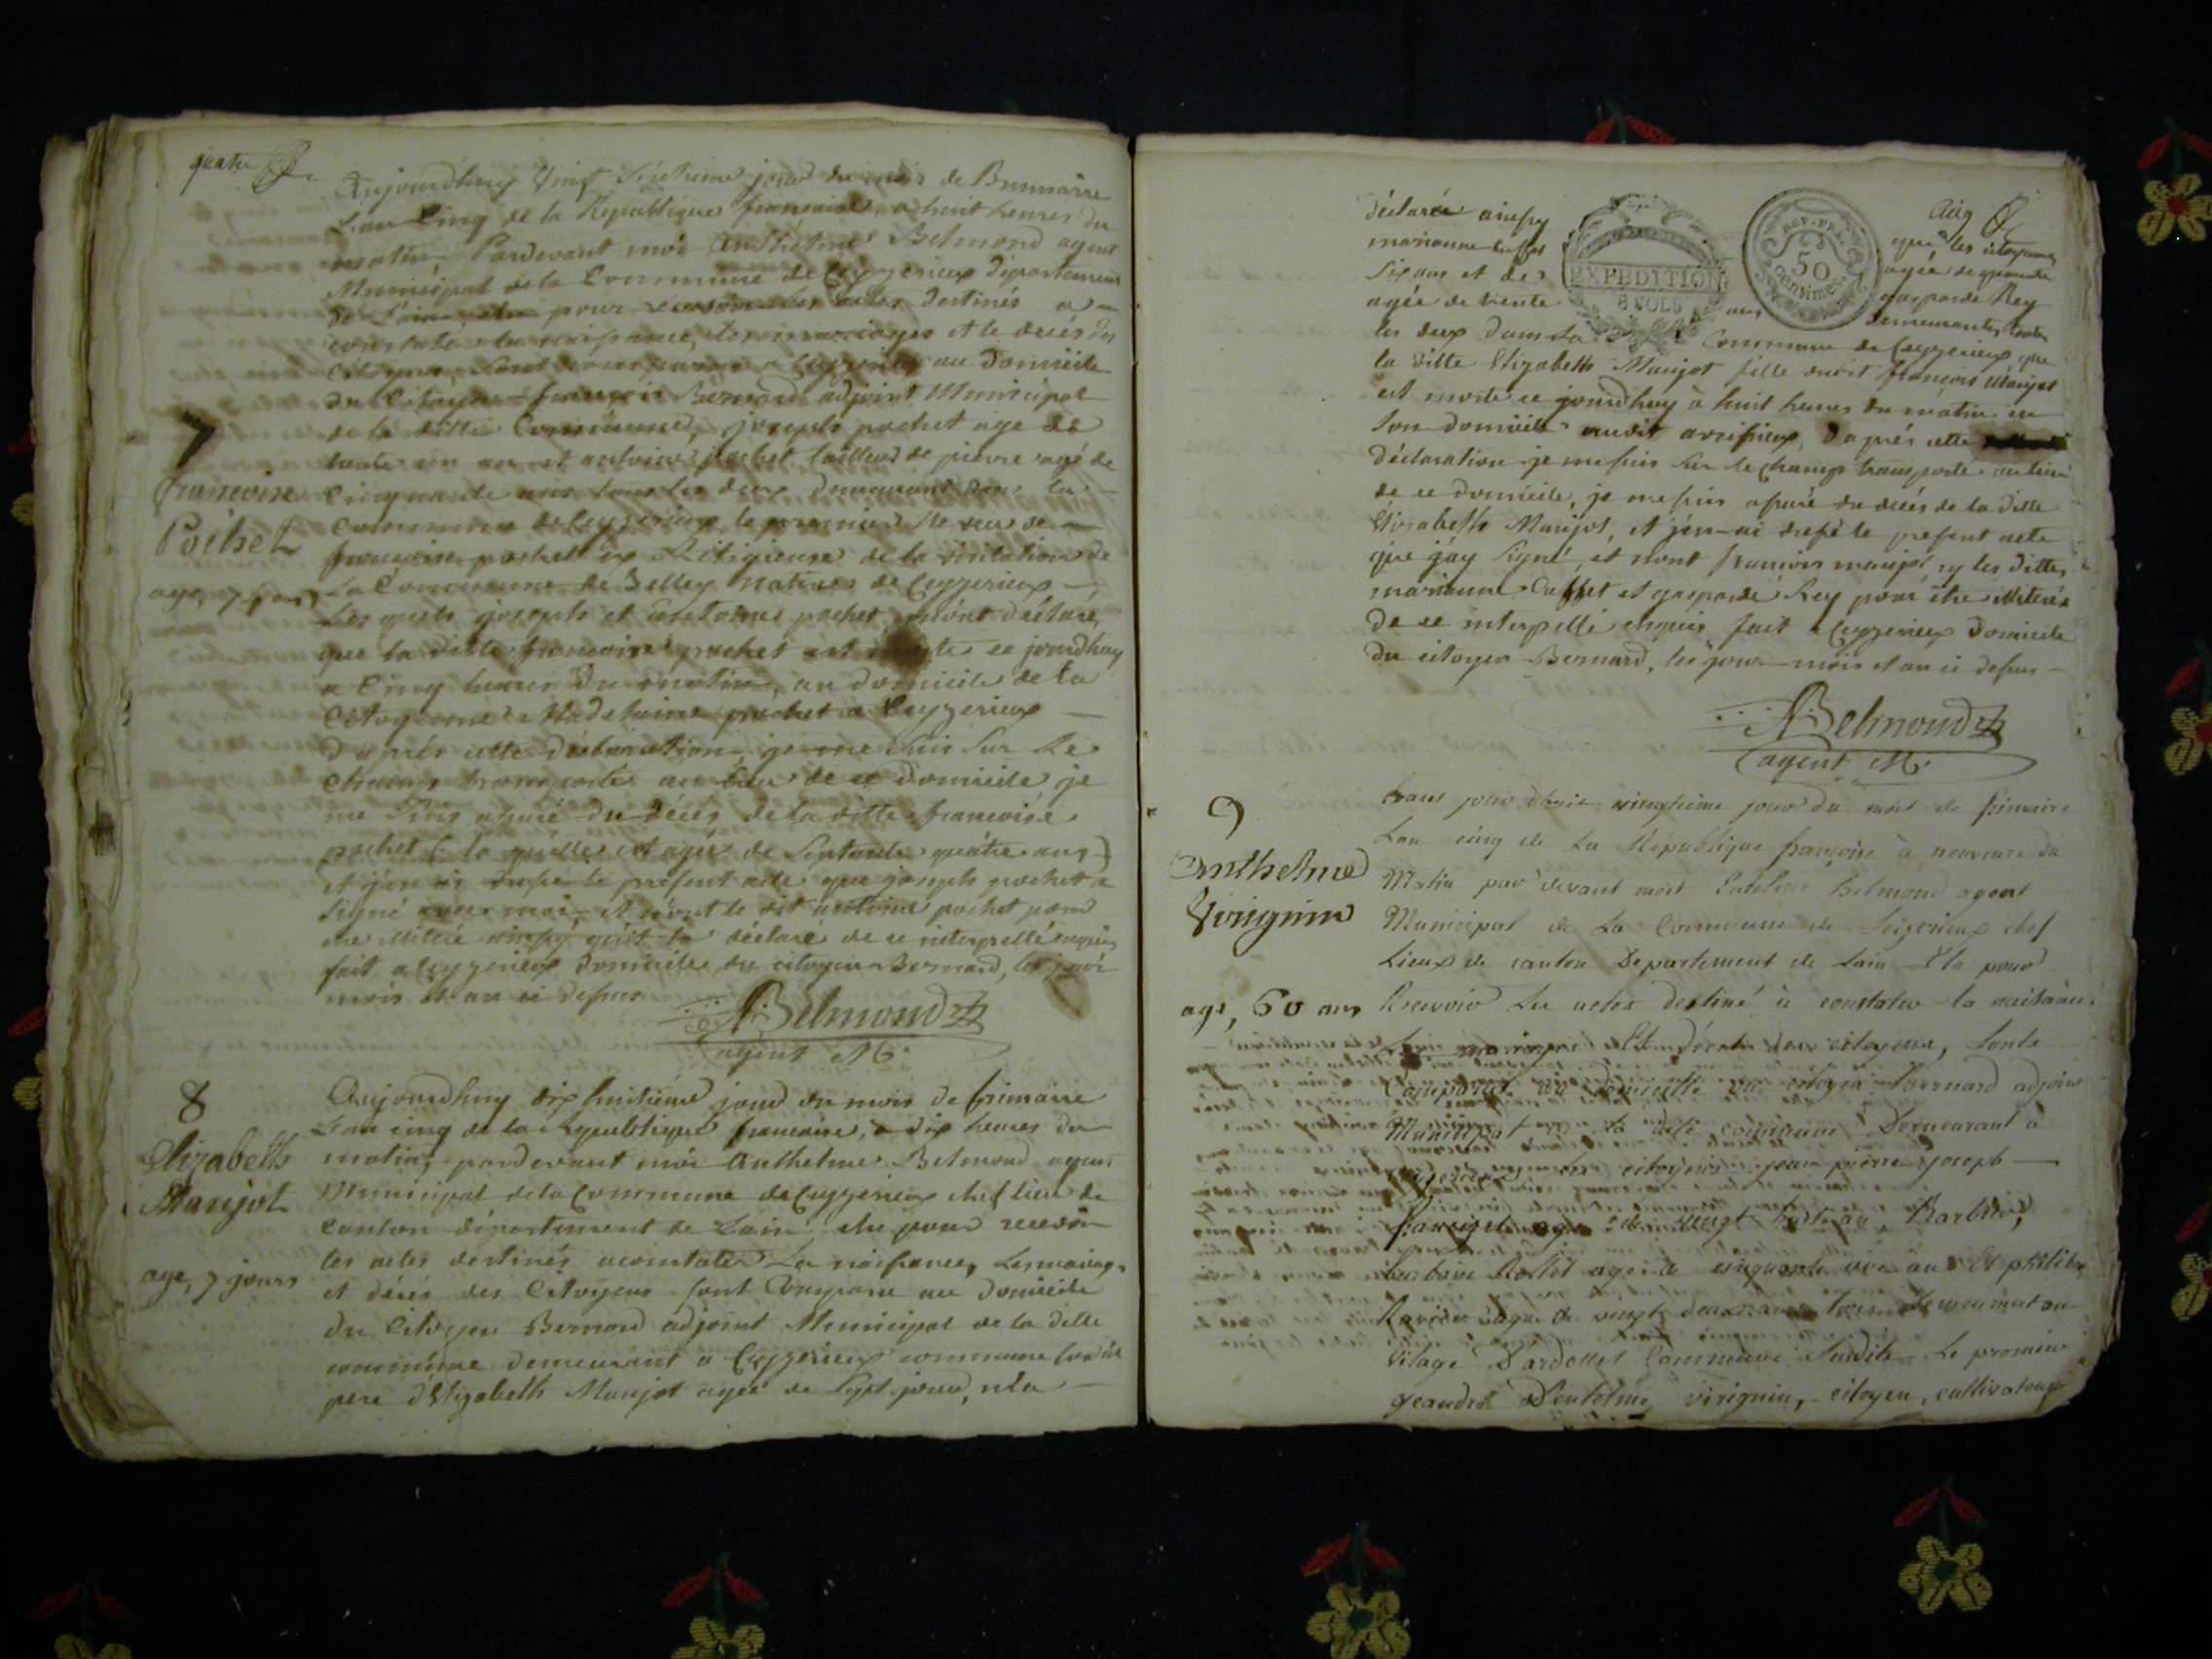 quatre
Aujourdhuy Vingt Sixtieme jour du mois de Brumaire
L'an Cinq de la République francaise, a huit heures du
matin Pardevant moi Anthelme Belmond agent
Municipal de la Commune de Ceyzerieux Département
de L'ain, elu pour recevoir les actes destinés a
constater la naissance, les mariages et le decés des
Citoyens, sont comparus a Ceyzerieux au Domicile
du Citoyen francois Bernard adjoint Municipal
de la ditte Commune, joseph pochet age de
trente un an et antoine pochet tailleur de pierre agé de
Cinquante ans tous les deux demeurant dans la
Commune de Ceyzerieux le premier Neveu de
francoise pochet ex Religieuse de la visitation de
La Commune de Belley Natives de Ceyzerieux
Lesquels joseph et antoine pochet mont déclaré,
que la ditte francoise pochet est morte ce jourdhuy
a Cinq heures du matin, au domicile de la
Citoyenne Madelaine pochet a Ceyzerieux
d'aprés cette déclaration, je me suis sur le
Champ transporté au lieu de ce domicile, je
me suis assuré du décés de la ditte francoise
pochet ( la quelle est agée de Septante quatre ans )
et j'en ai dressé le présent acte que joseph pochet a
signé avec moi, et non le dit antoine pochet pour
etre illitéré ainsy qu'il la déclaré de ce interpellé enquis
fait a Ceyzerieux domicile du citoyen Bernard, les jour
mois et an ci dessus
ABelmond
agent M.
7
francoise
Pochet
age, 74 ans
8
Elizabeth
Manjot
age, 7 jours
Aujourdhuy dix huitiéme jour du mois de frimaire
L'an cinq de la Republique francaise, a dix heures du
matin, pardevant moi Anthelme Belmond agent
Municipal de la Commune de Ceyzerieux chef lieu de
canton département de Lain elu pour recevoir
les actes destinés aconstater La naissance, Les mariages
et décés des Citoyens sont Comparu au Domicile
du Citoyen Bernard adjoint Municipal de la ditte
commune demeurant a Ceyzerieux commune
pere d'Elizabeth Manjot agée de Sept jours, nla
cinq
déclaré ainsy que les citoyennes
marianne Cuffet agée de quarante
Six ans et de gasparde Rey
agée de trente ans demeurantes toutes
les deux dans La Commune de Ceyzerieux que
la ditte Elizabeth Manjot fille dudit francois Manjot
est morte ce jourdhuy à huit heures du matin en
son domicile audit d'aprés cette
déclaration je me suis sur le Champ transporté au lieu
de ce domicile, je me suis assuré du décés de la ditte
Elizabeth Manjot, et jen ai dressé le present acte
que j'ay signé, et nont francois manjot, ny les dittes
marianne Cuffet et gasparde Rey pour étre illiterés
de ce interpellé enquis fait a Ceyzerieux domicile
du citoyen Bernard, les jour mois et an ci dessus
EXPEDITION
8 SOLS
REP. FRA.
50
centimes.
ABelmond
agent M.
9
Anthelme
Virignin
age, 60 ans
vingtieme jour du mois de frimaire
Lan cinq de La République françoise à neuveure du
Matin par devant moi Belmond agent
Municipal de La Commune de Seizerieux chef
Lieux de canton Département de Lain Elu pour
Recevoir Les actes destiné à constater la naisance
Les mariages Et décés des citoyens, Sonts
Comparus au domicille du citoyen Bernard adjoint
Municipal de la ditte commune Demeurant à
les citoyens jean pierre joseph
age de vingt huit an, Barbier,
Rostet agé de cinquante an Et philiber
Raviere agé de vingt deux ans tous Demeurant au
vilage D'ardosset Commune Susdits Le premier
geandre Denthelme virignin, citoyen, cultivateur